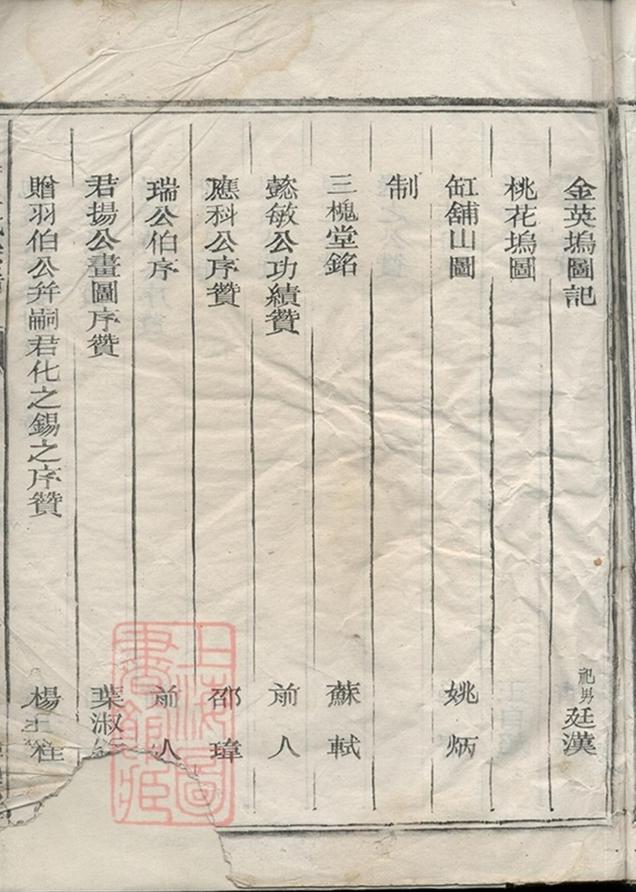 金英塢圖記 祀男廷漢
桃花塢圖
缸舖山圖 姚炳
制
三槐堂銘 蘇軾
懿敏公功績贊 前人
應科公序贊 邵瑋
瑞公伯序 前人
君揚公畫圖序贊 葉淑
贈羽伯公弁嗣君化之錫之序贊 楊
上海圖書館藏